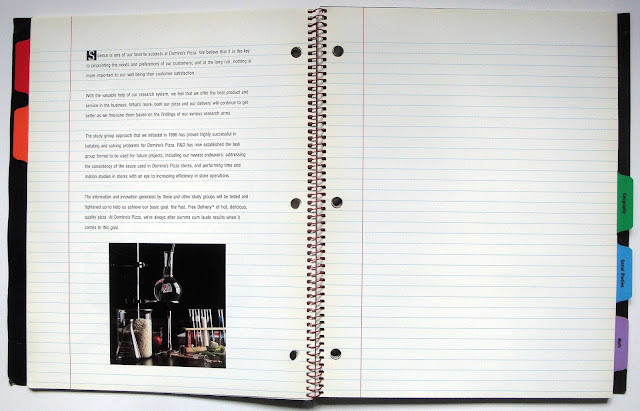 Science is one of our favorite subjects at Domino's Pizza. We believe that it is the key
to pinpointing the needs and preferences of our customers; and in the long run, nothing is
more important to our well-being than customer satisfaction.
With the valuable help of our research system, we feel that we offer the best product and
service in the business. What's more, both our pizza and our delivery will continue to get
better as we fine-tune them based on the findings of our various research arms.
The study group approach that we initiated in 1986 has proved highly successful in
isolating and solving problems for Domino's Pizza. R&D has now established the task
group format to be used for future projects, including our newest endeavors: addressing
the consistency of the sauce used in Domino's Pizza stores, and performing time and
motion studies in stores with an eye to increasing efficiency in store operations.
The information and innovation generated by these and other study groups will be tested and
tightened up to help us achieve our basic goal: the Fast, Free Delivery of hot, delicious,
quality pizza. At Domino's Pizza, we're always after summa cum laude results when it
comes to this goal.
Geography
Social Studies
Math